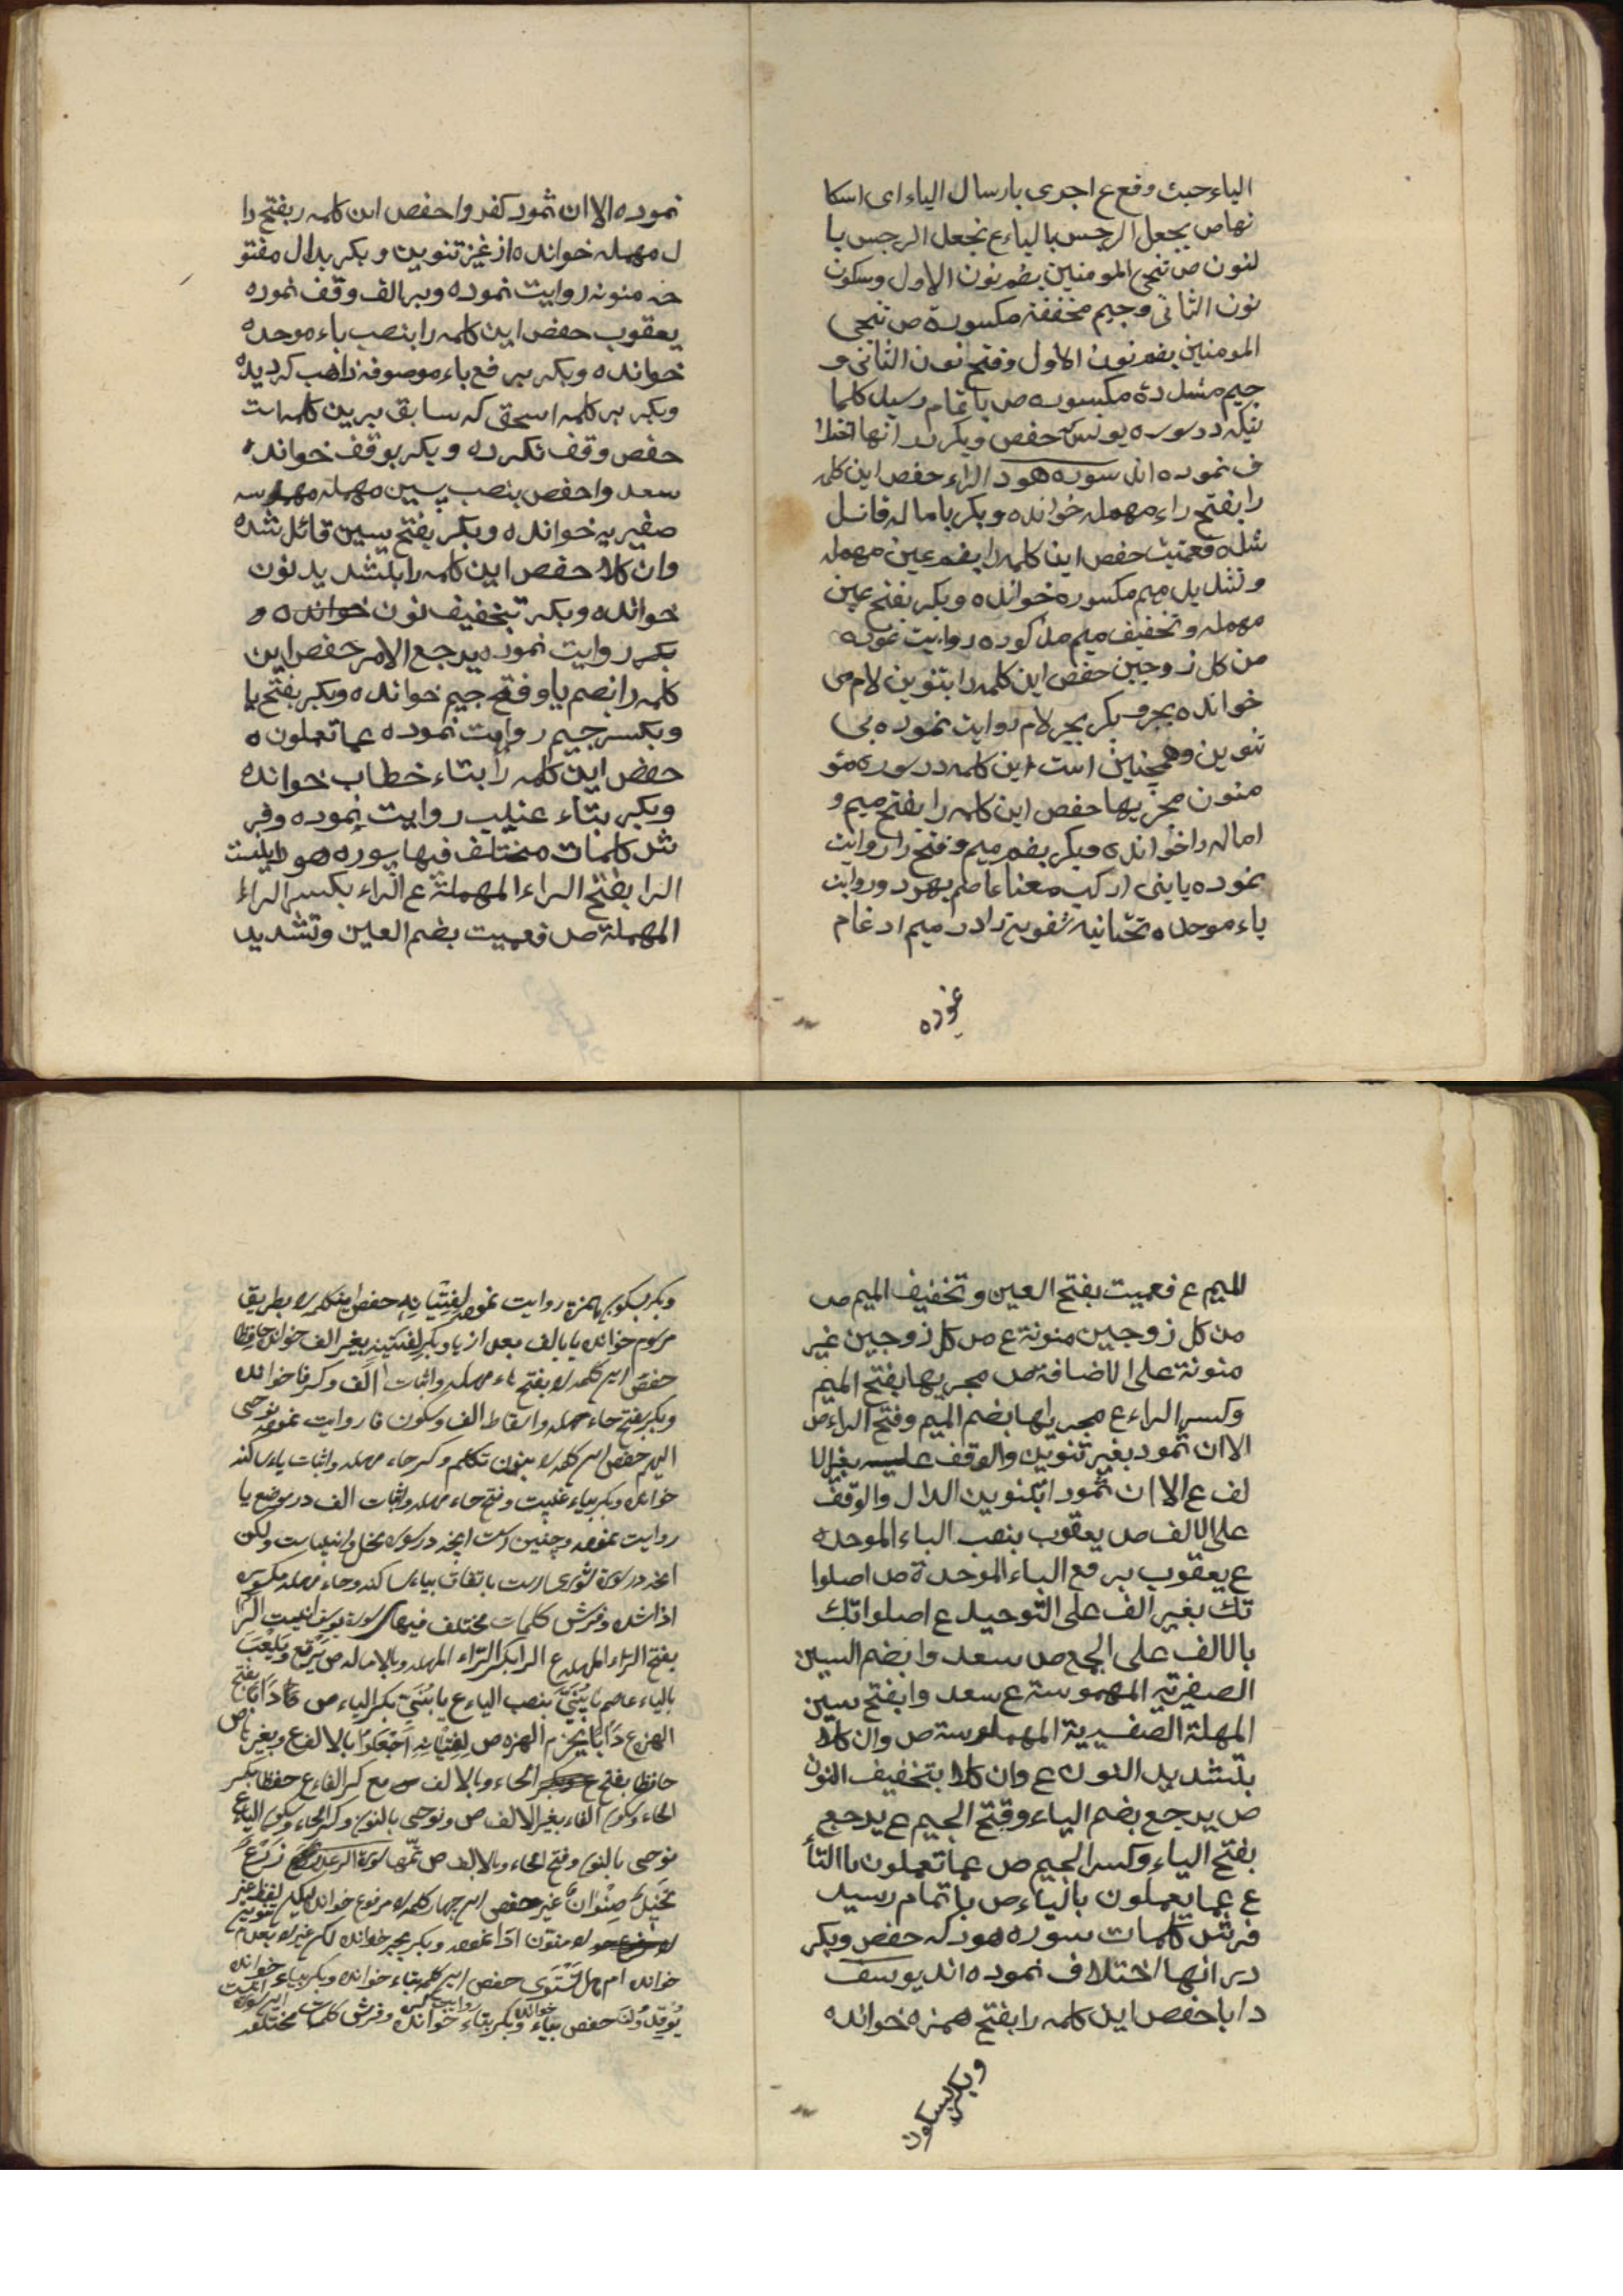 الیاء حیث وقع ع اجری بارسال الیاء ای اسکا
نها ص یجعل الرجس بالیاء ع نجعل الرجس با
لنون ص ننجی المومنین بضم نون الاول وسکون
نون الثانی وجیم مخففة مکسورة ص ننجی
المومنین بضم نون الاول وفتح نون الثانی و
جیم مشدده مکسوره ص باتمام رسید کلما
تیکه در سوره یونس که حفص وبکر در انها اختلا
ف نموده اند سوره هود الراء حفص این کلمه
را بفتح راء مهمله خوانده وبکر باماله قائل
شده فعمیت حفص این کلمه را بضم عین مهمله
وتشدید میم مکسوره خوانده وبکر بفتح عین
مهمله وتخفیف میم مذکوره روایت نموده
من کل زوجین حفص این کلمه را بتنوین لام می
خوانده بجر وبکر بجر لام روایت نموده بی
تنوین وهمچنین است این کلمه در سوره مؤ
منون مجریها حفص این کلمه را بفتح میم و
اماله را خوانده وبکر بضم میم وفتح را روایت
نموده یابنی ارکب معنا عاصم بهر دو روایت
باء موحده تحتانیه شفویه را در میم ادغام
نموده
نموده الا ان ثمود کفروا حفص این کلمه ربفتح دا
ل مهمله خوانده از غیر تنوین وبکر بدال مفتو
حه منونه روایت نموده وبرالف وقف نموده
یعقوب حفص این کلمه را بنصب باء موحده
خوانده وبکر برفع باء موصوفه ذاهب کردیده
وبکر بر کلمه اسحق که سابق برین کلمه است
حفص وقف نکرده وبکر بوقف خوانده
سعدوا حفص بنصب سین مهمله مهموسه
صفیریه خوانده وبکر بفتح سین قائل شده
وان کلا حفص این کلمه را بتشدید نون
خوانده وبکر تبخفیف نون خوانده و
بکر روایت نموده یرجع الامر حفص این
کلمه را بضم یا وفتح جیم خوانده وبکر بفتح یا
وبکسر جیم روایت نموده عما تعملون ه
حفص این کلمه را بتاء خطاب خوانده
وبکر بتاء غیب روایت نموده وفر
ش کلمات مختلف فیها سوره هود اینست
الرا بفتح الراء المهملة ع الراء بکسر الراء
المهملة ص فعمیت بضم العین وتشدید
المیم ع فعمیت بفتح العین وتخفیف المیم ص
من کل زوجین منونة ع ص کل زوجین غیر
منونة علی الاضافة ص مجریها بفتح المیم
وکسر الراء ع مجریها بضم المیم وفتح الراء ص
الا ان ثمود بغیر تنوین والوقف علیه بغیر الا
لف ع الا ان ثمودا بتنوین الدال والوقف
علی الالف ص یعقوب بنصب الباء الموحده
ع یعقوب برفع الباء الموحدة ص اصلوا
تک بغیر الف علی التوحید ع اصلواتک
بالالف علی الجمع ص سعدوا بضم السین
الصفیریه المهموسة ع سعدوا بفتح سین
المهلة الصفیریة المهموسة ص وان کلا
بتشدید النون ع وان کلا بتخفیف النون
ص یرجع بضم الیاء وفتح الجیم ع یرجع
بفتح الیاء وکسر الجیم ص عما تعملون باالتا
ع عما یعملون بالیاء ص باتمام رسید
فرش کلمات سوره هود که حفص وبکر
در انها اختلاف نموده اند یوسف
دابا حفص این کلمه را بفتح همزه خوانده
وبکر بسکون
وبکر بسکون همزه روایت نموده لفتیانه حفص اینکلمه را بطریق
مرسوم خوانده یا بالف بعد از یا وبکر لفتیته بغیر الف خوانده حافظا
حفص این کلمه را بفتح حاء مهمله واثبات الف وکسر فا خوانده
وبکر بفتح حاء مهمله واسقاط الف وسکون فا روایت نموده نوحی
الیهم حفص این کلمه را بنون تکلم وکسر حاء مهمله واثبات یاء ساکنه
خوانده وبکر بیاء غیبت وفتح حاء مهمله واثبات الف در موضع یا
روایت نموده وچنین است انچه در سوره نحل وانبیاست ولکن
انچه در سورة شوری است باتفاق بیاء ساکنه وحاء مهمله مکسوره
اداشده وفرش کلمات مختلف فیهای سورة یوسف اینست الرا
بفتح الراء المهمله ع الرا بکسر الراء المهمله وبالاماله ص یرتع ویلعب
بالیاء عاصم یا بنی بنصب الیاء ع یا بنی بکسر الیاء ص دابا بفتح
الهمزه ع دابا بجزم الهمزه ص لفتیانه اجعلوا بالالف ع وبغیر تا ص
حافظا بفتح الحاء وبالالف مع کسر الفاء ع حفظا بکسر
الحاء وسکون الفاء بغیر الالف ص ونوحی بالنون وکسر الحاء وسکون الیاء ع
نوحی بالنون وفتح الحاء وبالالف ص سورة الرعد زرع
نخیل صنوان غیر حفص این چهار کلمه را مرفوع خوانده لیکن لفظ غیر
را منون ادا نموده وبکر بجر خوانده لکن غیر را بعدم تنوین
خوانده ام هل تستوی حفص این کلمه بتاء خوانده وبکر بیاء خوانده
یوقدون حفص بیاء خوانده وبکر بتاء خوانده وفرش کلمات مختلفه این سوره اینست